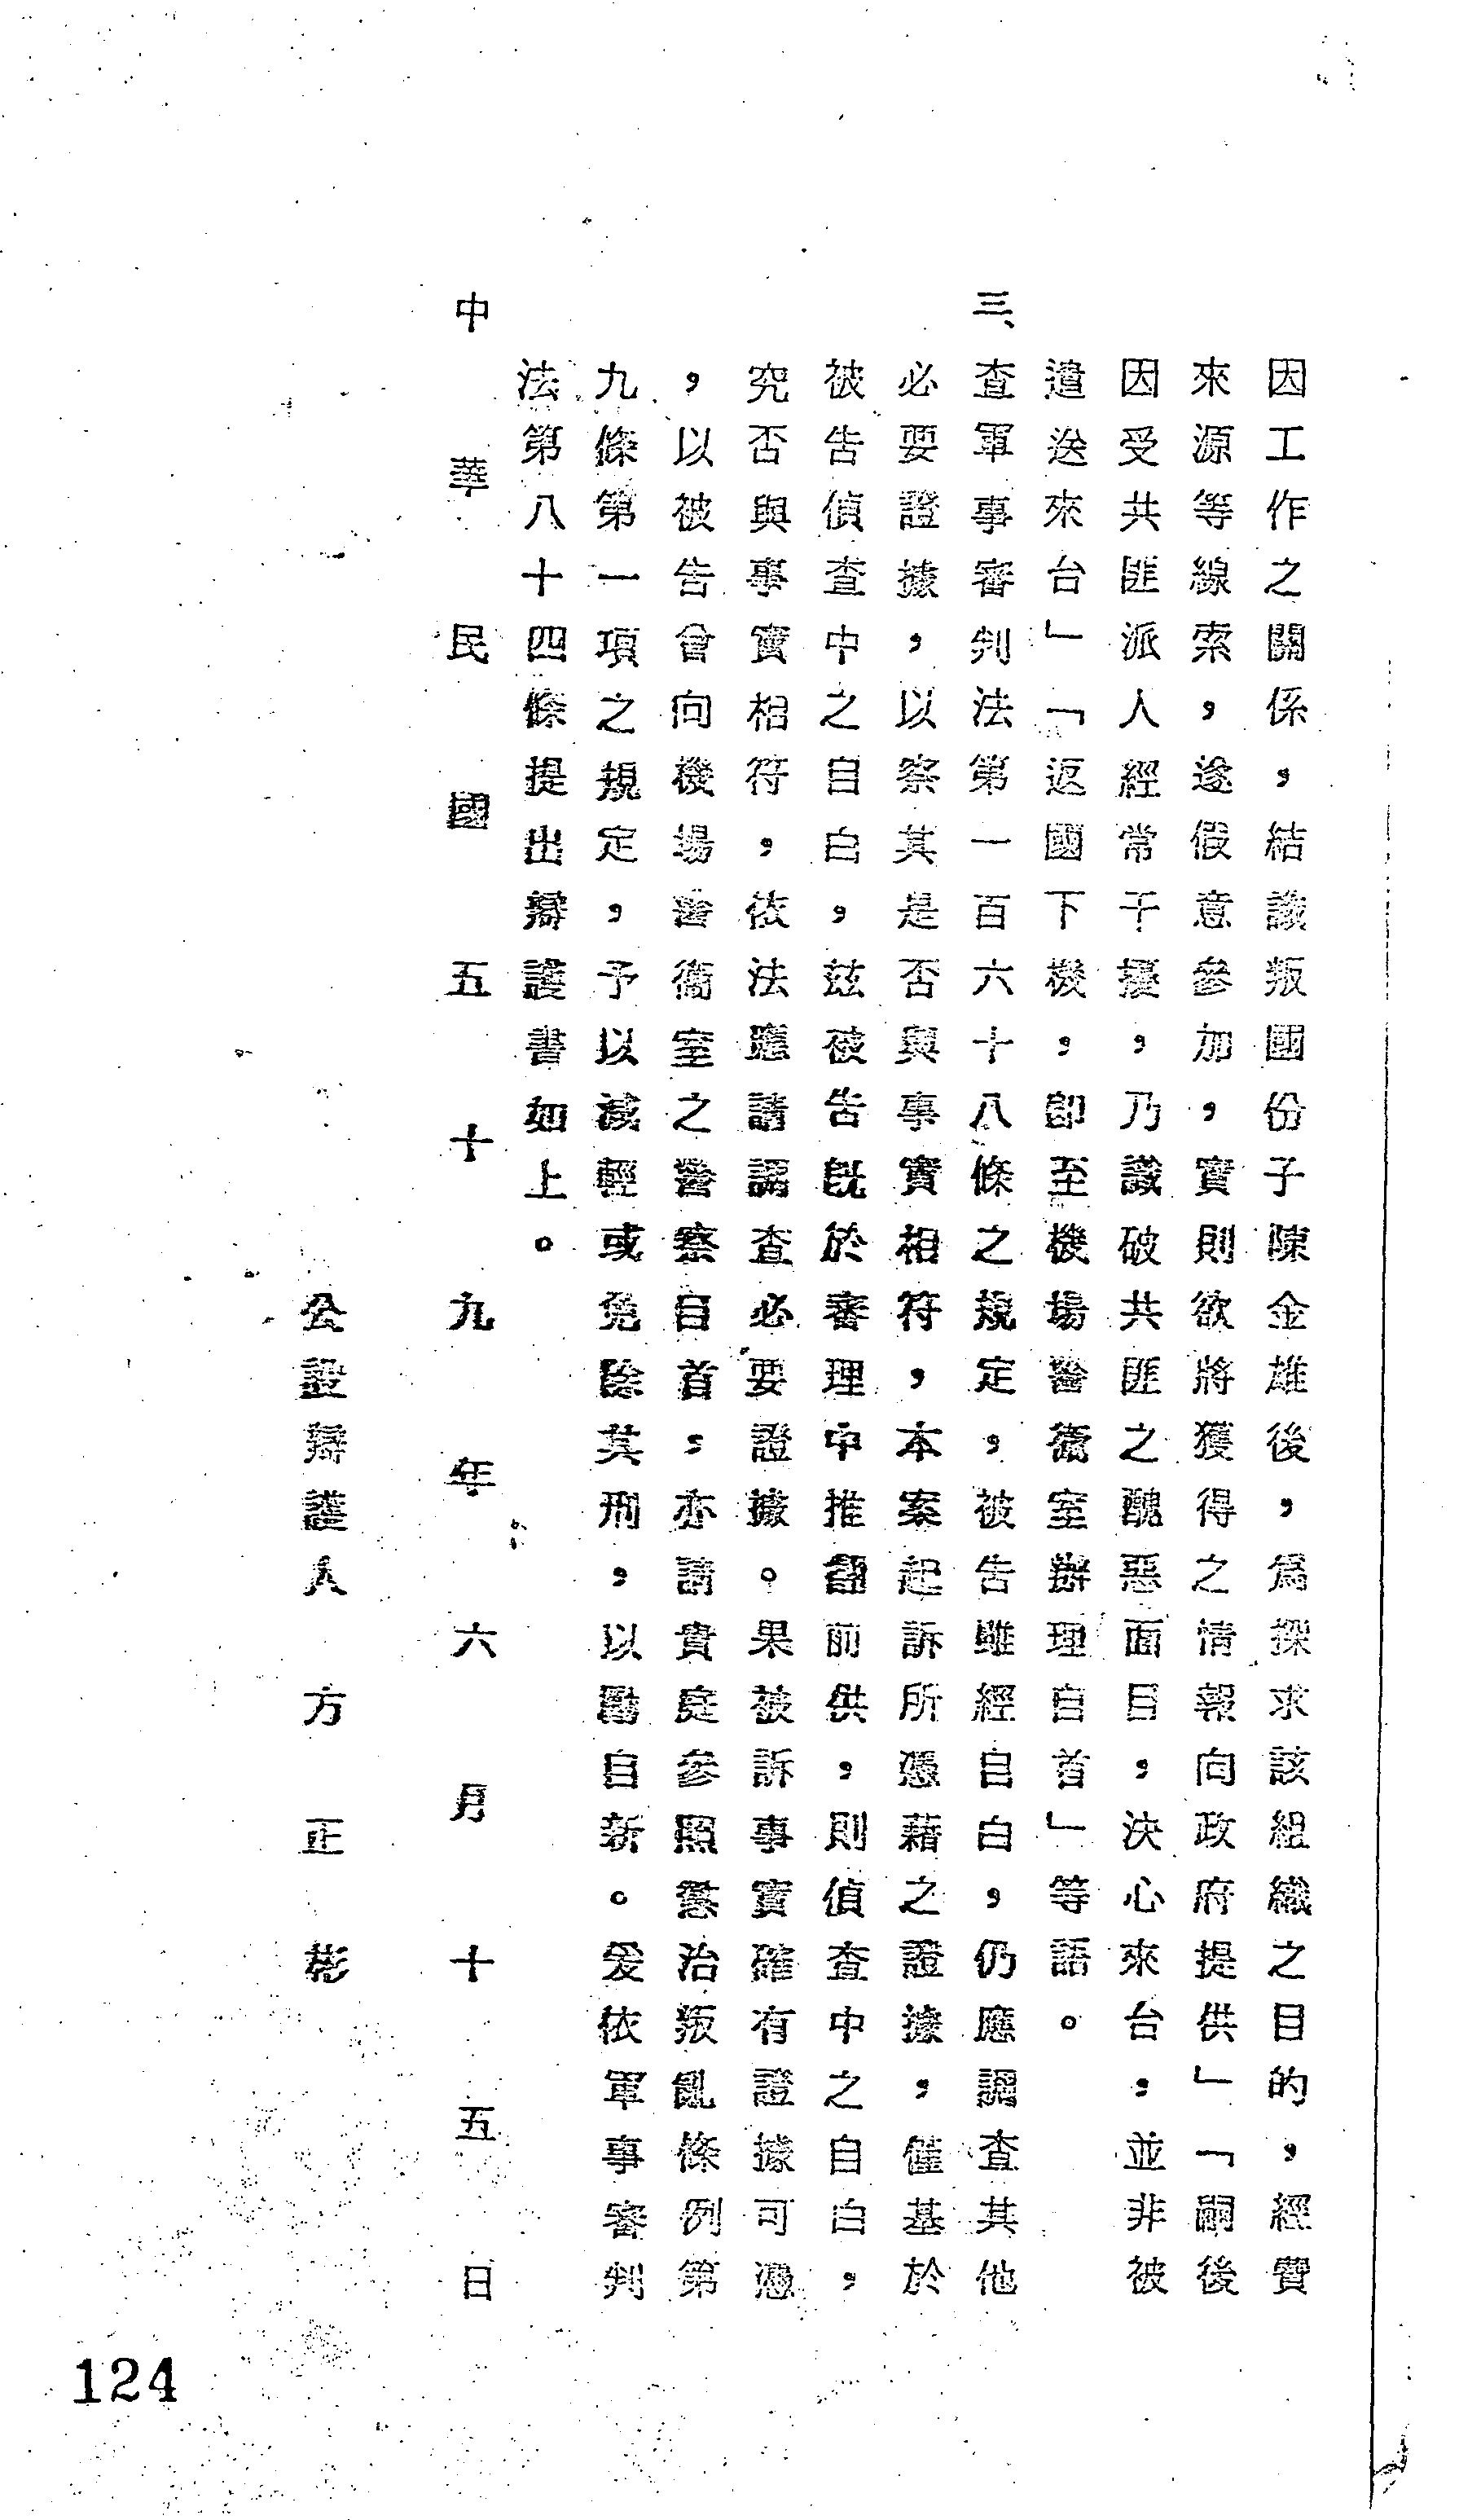 因工作之關係，結識叛國份子陳金雄後，為探求該組織之目的，經費
來源等線索，遂假意參加，實則欲將獲得之情報向政府提供」「嗣後
因受共匪派人經常干擾，乃識破共匪之醜惡面目，決心來台，並非被
遣送來台」「返國下機，卽至機場警衞室辦理自首」等語。
三、查軍事審判法第一百六十八條之規定，被告雖經自白，仍應調查其他
必要證據，以察其是否與事實相符，本案起訴所憑藉之證據，僅基於
被告偵查中之自白，玆被告旣於審理中推翻前供，則偵查中之自白，
究否與事實相符，依法應請調查必要證據。果被訴事實確有證據可憑
，以被告曾向機場警衞室之警察自首，亦請貴庭參照懲治叛亂條例第
九條第一項之規定，予以減輕或免除其刑，以勵自新。爰依軍事審判
法第八十四條提出辯護書如上。
中華民國五十九年六月十五日
公設辯護人方正彬
124